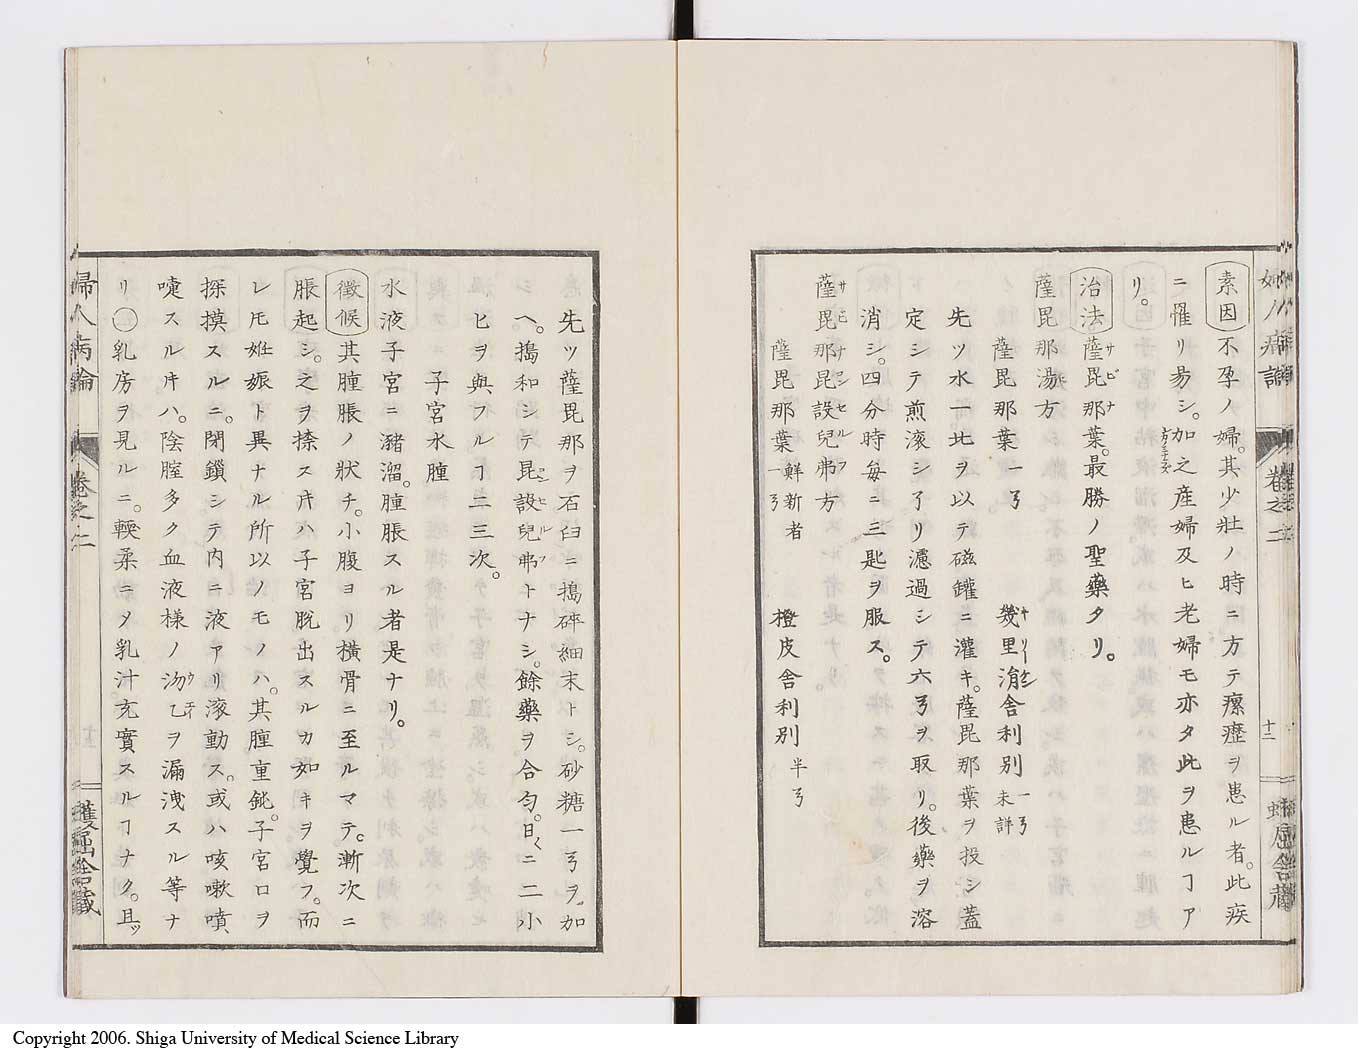 素因不孕ノ婦。其少壯ノ時ニ方テ瘰癧ヲ患ル者。此疾
ニ罹リ易シ。加之産婦及ヒ老婦モ亦タ此ヲ患ルヿア
リ。
治法薩毘那葉。最勝ノ聖藥タリ。
薩毘那湯方
薩毘那葉一弓 幾里滃舎利別未詳一弓
先ツ水一比ヲ以テ磁罐ニ灌キ。薩毘那葉ヲ投シ蓋
定シテ煎滚シ了リ濾過シテ六弓ヲ取リ。後藥ヲ溶
消シ。四分時毎ニ三匙ヲ服ス。
薩毘那昆設兒弗方
薩毘那葉鮮新者一弓 橙皮舎利別半弓
先ツ薩毘那ヲ石臼ニ搗碎細末トシ。砂糖一弓ヲ加
ヘ。搗和シテ昆設兒弗トナシ。餘藥ヲ合匀。日ニ二小
ヒヲ與フルヿ二三次。
子宮水腫
水液子宮ニ瀦溜。腫脹スル者是ナリ。
徴候其腫脹ノ狀チ。小腹ヨリ橫骨ニ至ルマテ。漸次ニ
脹起シ。之ヲ捺ス片ハ子宮脱出スルカ如キヲ覺フ。而
レ𪜈姙娠ト異ナル所以ノモノハ。其腫重鈍。子宮口ヲ
探摸スルニ。閉鎖シテ内ニ液アリ滚動ス。或ハ咳嗽噴
嚏スル片ハ。陰腟多ク血液様ノ沕乙ヲ漏洩スル等ナ
リ㊁乳房ヲ見ルニ。輭柔ニ乄乳汁充實スルヿナク。且ッ
婦人病論 卷之二
十二
蠖屈舎藏
Copyright 2006. Shiga University of Medical Science Library